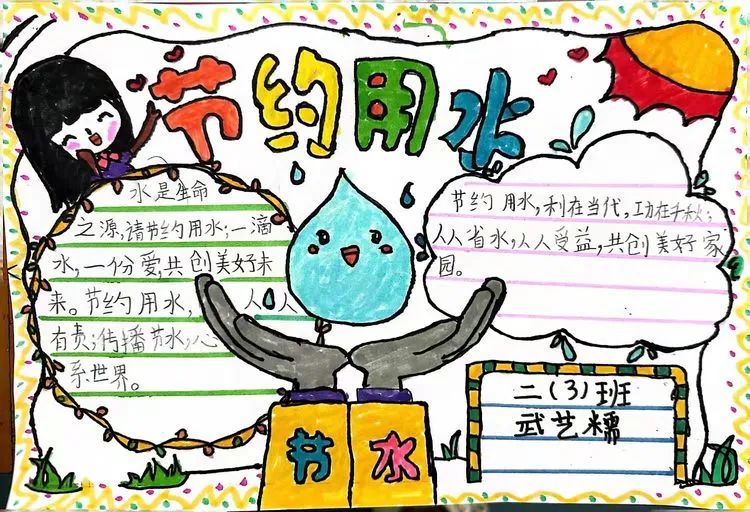 节约用水
水是生命
之源,请节约用水;一滴
水,一份爱,共创美好未
来。节约用水,人人
有责;传播节水,心
系世界。
节约用水,利在当代,功在千秋;
人人省水,人人受益,共创美好家
园。
二(3)班
武艺糯
节水